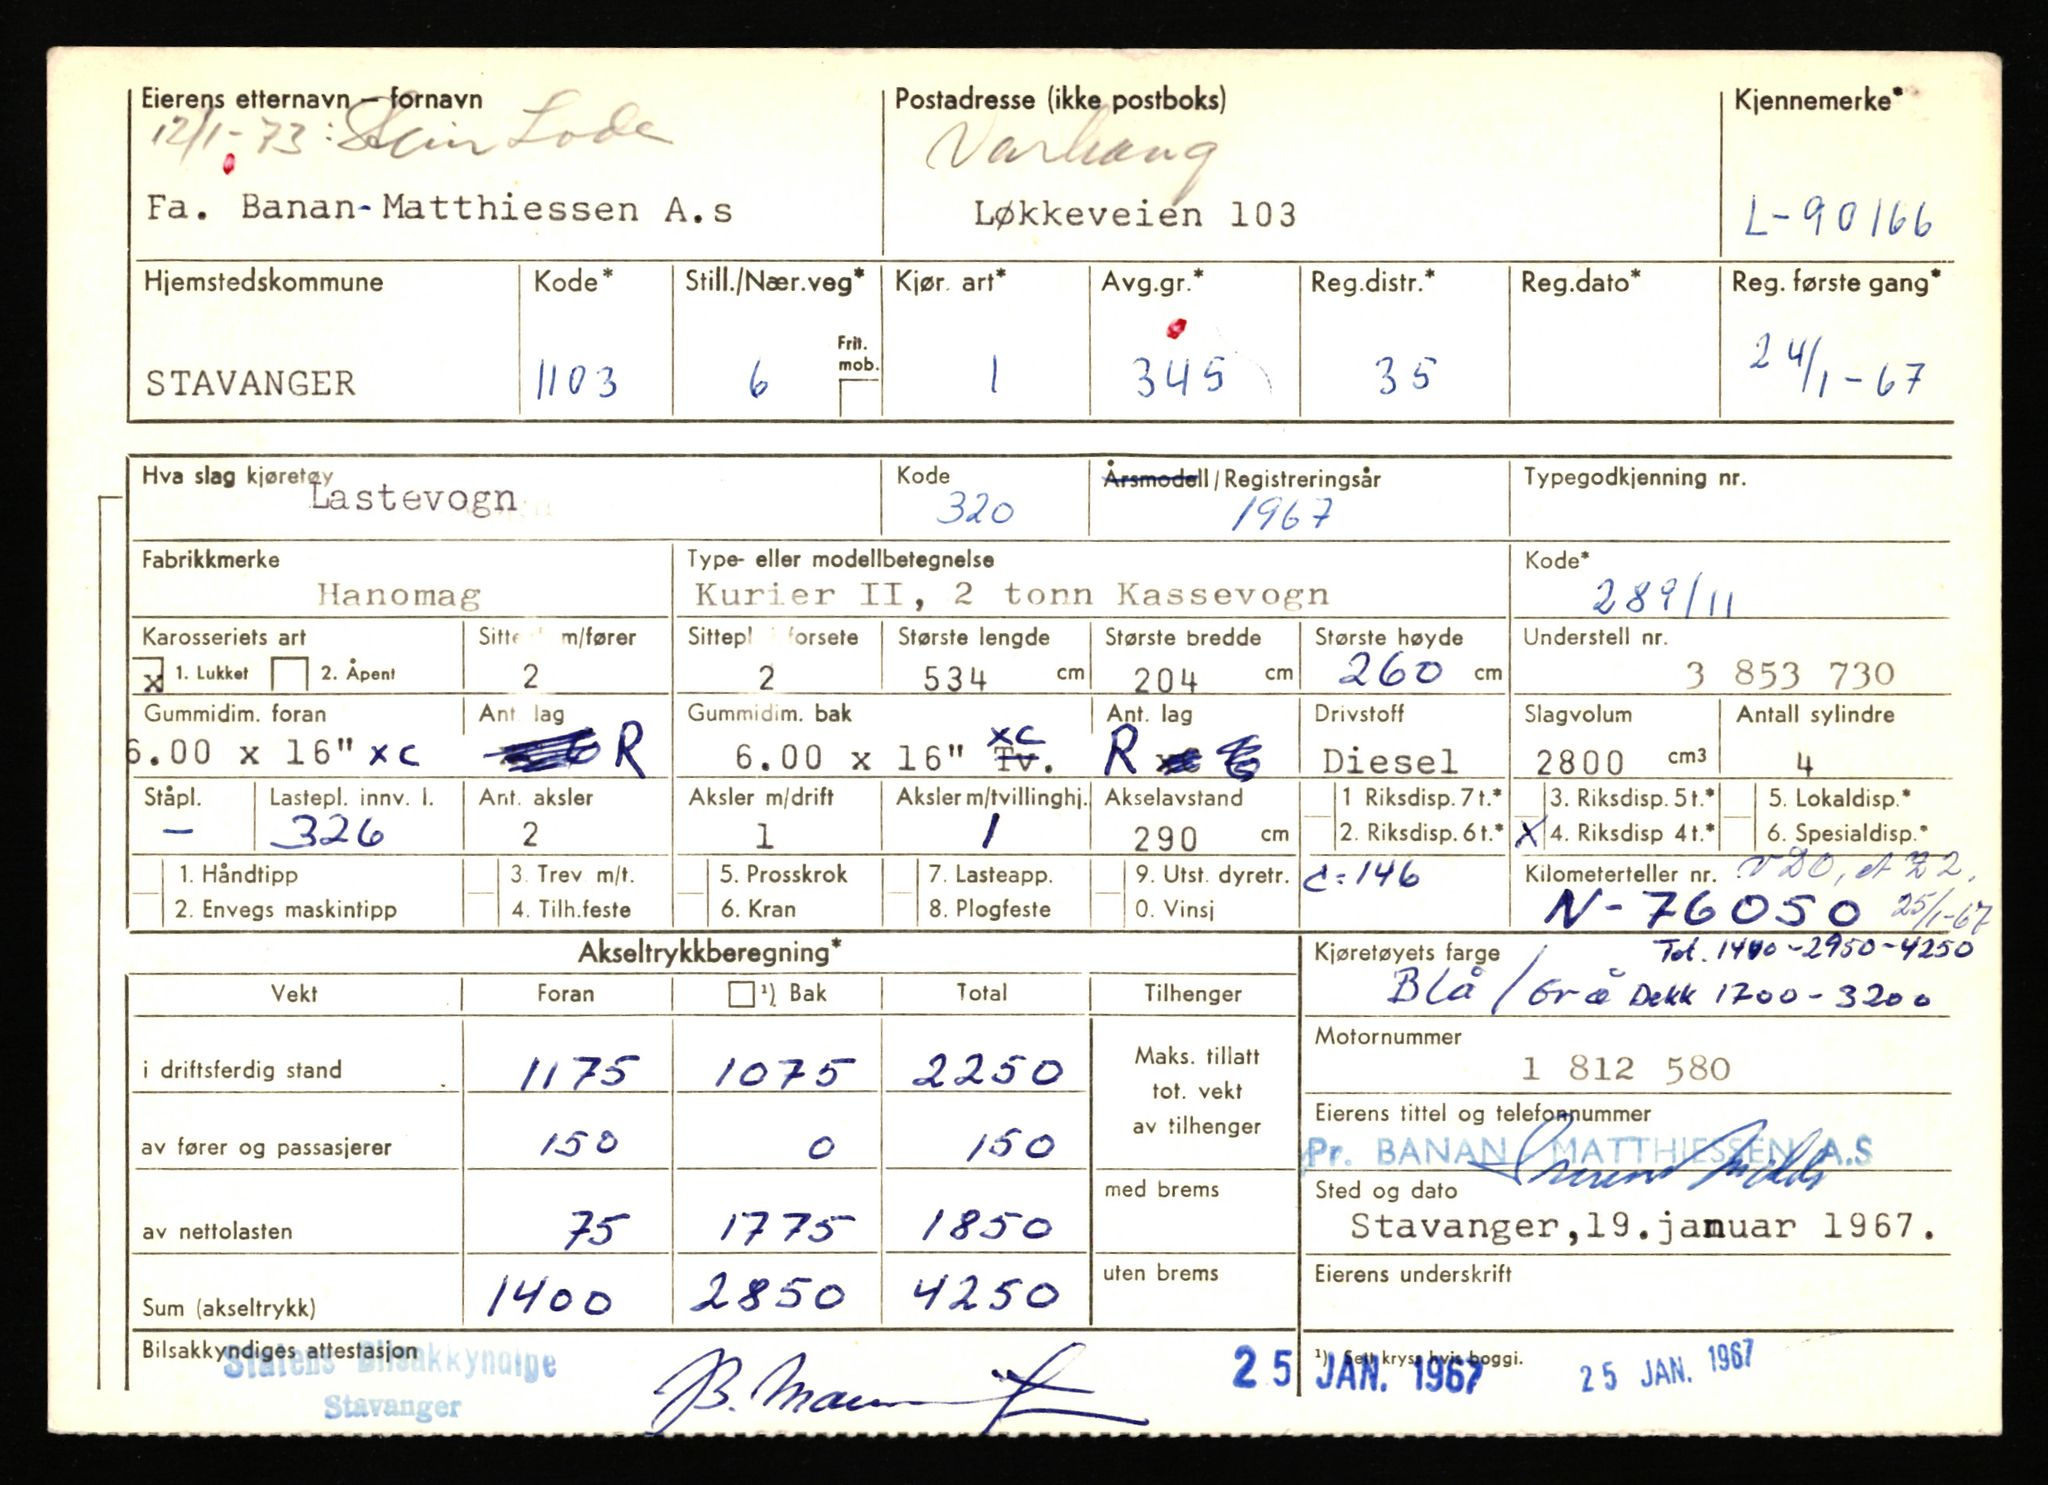 Eierens etternavn – fornavn Postadresse (ikke postboks) Kjennemerke*
12/1-73: Stein Lode Varhaug
Fa. Banan-Matthiessen A.s Løkkeveien 103 L-90166
Hjemstedskommune Kode* Still./Nær.veg* Kjør. art* Avg.gr.* Reg.distr.* Reg.dato* Reg. første gang*
Frit. mob.
STAVANGER 1103 6 1 345 35 24/1-67
Hva slag kjøretøy Kode Årsmodell/Registreringsår Typegodkjenning nr.
Lastevogn 320 1967
Fabrikkmerke Type- eller modellbetegnelse Kode*
Hanomag Kurier II, 2 tonn Kassevogn 289/11
Karosseriets art Sittepl. m/fører Sittepl. i forsete Største lengde Største bredde Største høyde Understell nr.
x 1. Lukket 2. Åpent 2 2 534 cm 204 cm 260 cm 3 853 730
Gummidim. foran Ant. lag Gummidim. bak Ant. lag Drivstoff Slagvolum Antall sylindre
6.00 x 16" xc R 6.00 x 16" Tv. xc R Diesel 2800 cm3 4
Ståpl. Lastepl. innv. l. Ant. aksler Aksler m/drift Aksler m/tvillinghj. Akselavstand 1 Riksdisp. 7 t.* 3. Riksdisp. 5 t.* 5. Lokaldisp.*
– 326 2 1 1 290 cm 2. Riksdisp. 6 t.* x 4. Riksdisp 4 t.* 6. Spesialdisp.*
1. Håndtipp 3. Trev m/t. 5. Prosskrok 7. Lasteapp. 9. Utst. dyretr. c=146 Kilometerteller nr. VDO,
2. Envegs maskintipp 4. Tilh.feste 6. Kran 8. Plogfeste 0. Vinsj N-76050 25/1-67
Akseltrykkberegning* Kjøretøyets farge Tot. 1400-2950-4250
Vekt Foran ¹) Bak Total Tilhenger Blå / Grå Dekk 1700-3200
Motornummer
i driftsferdig stand 1175 1075 2250 Maks. tillatt tot. vekt av tilhenger 1 812 580
Eierens tittel og telefonnummer
av fører og passasjerer 150 0 150 Pr. BANAN MATTHIESSEN A.S
med brems Sted og dato
av nettolasten 75 1775 1850 Stavanger,19.januar 1967.
uten brems Eierens underskrift
Sum (akseltrykk) 1400 2850 4250
Bilsakkyndiges attestasjon ¹) Sett kryss hvis boggi.
Statens Bilsakkyndige 25 JAN. 1967 25 JAN. 1967
Stavanger